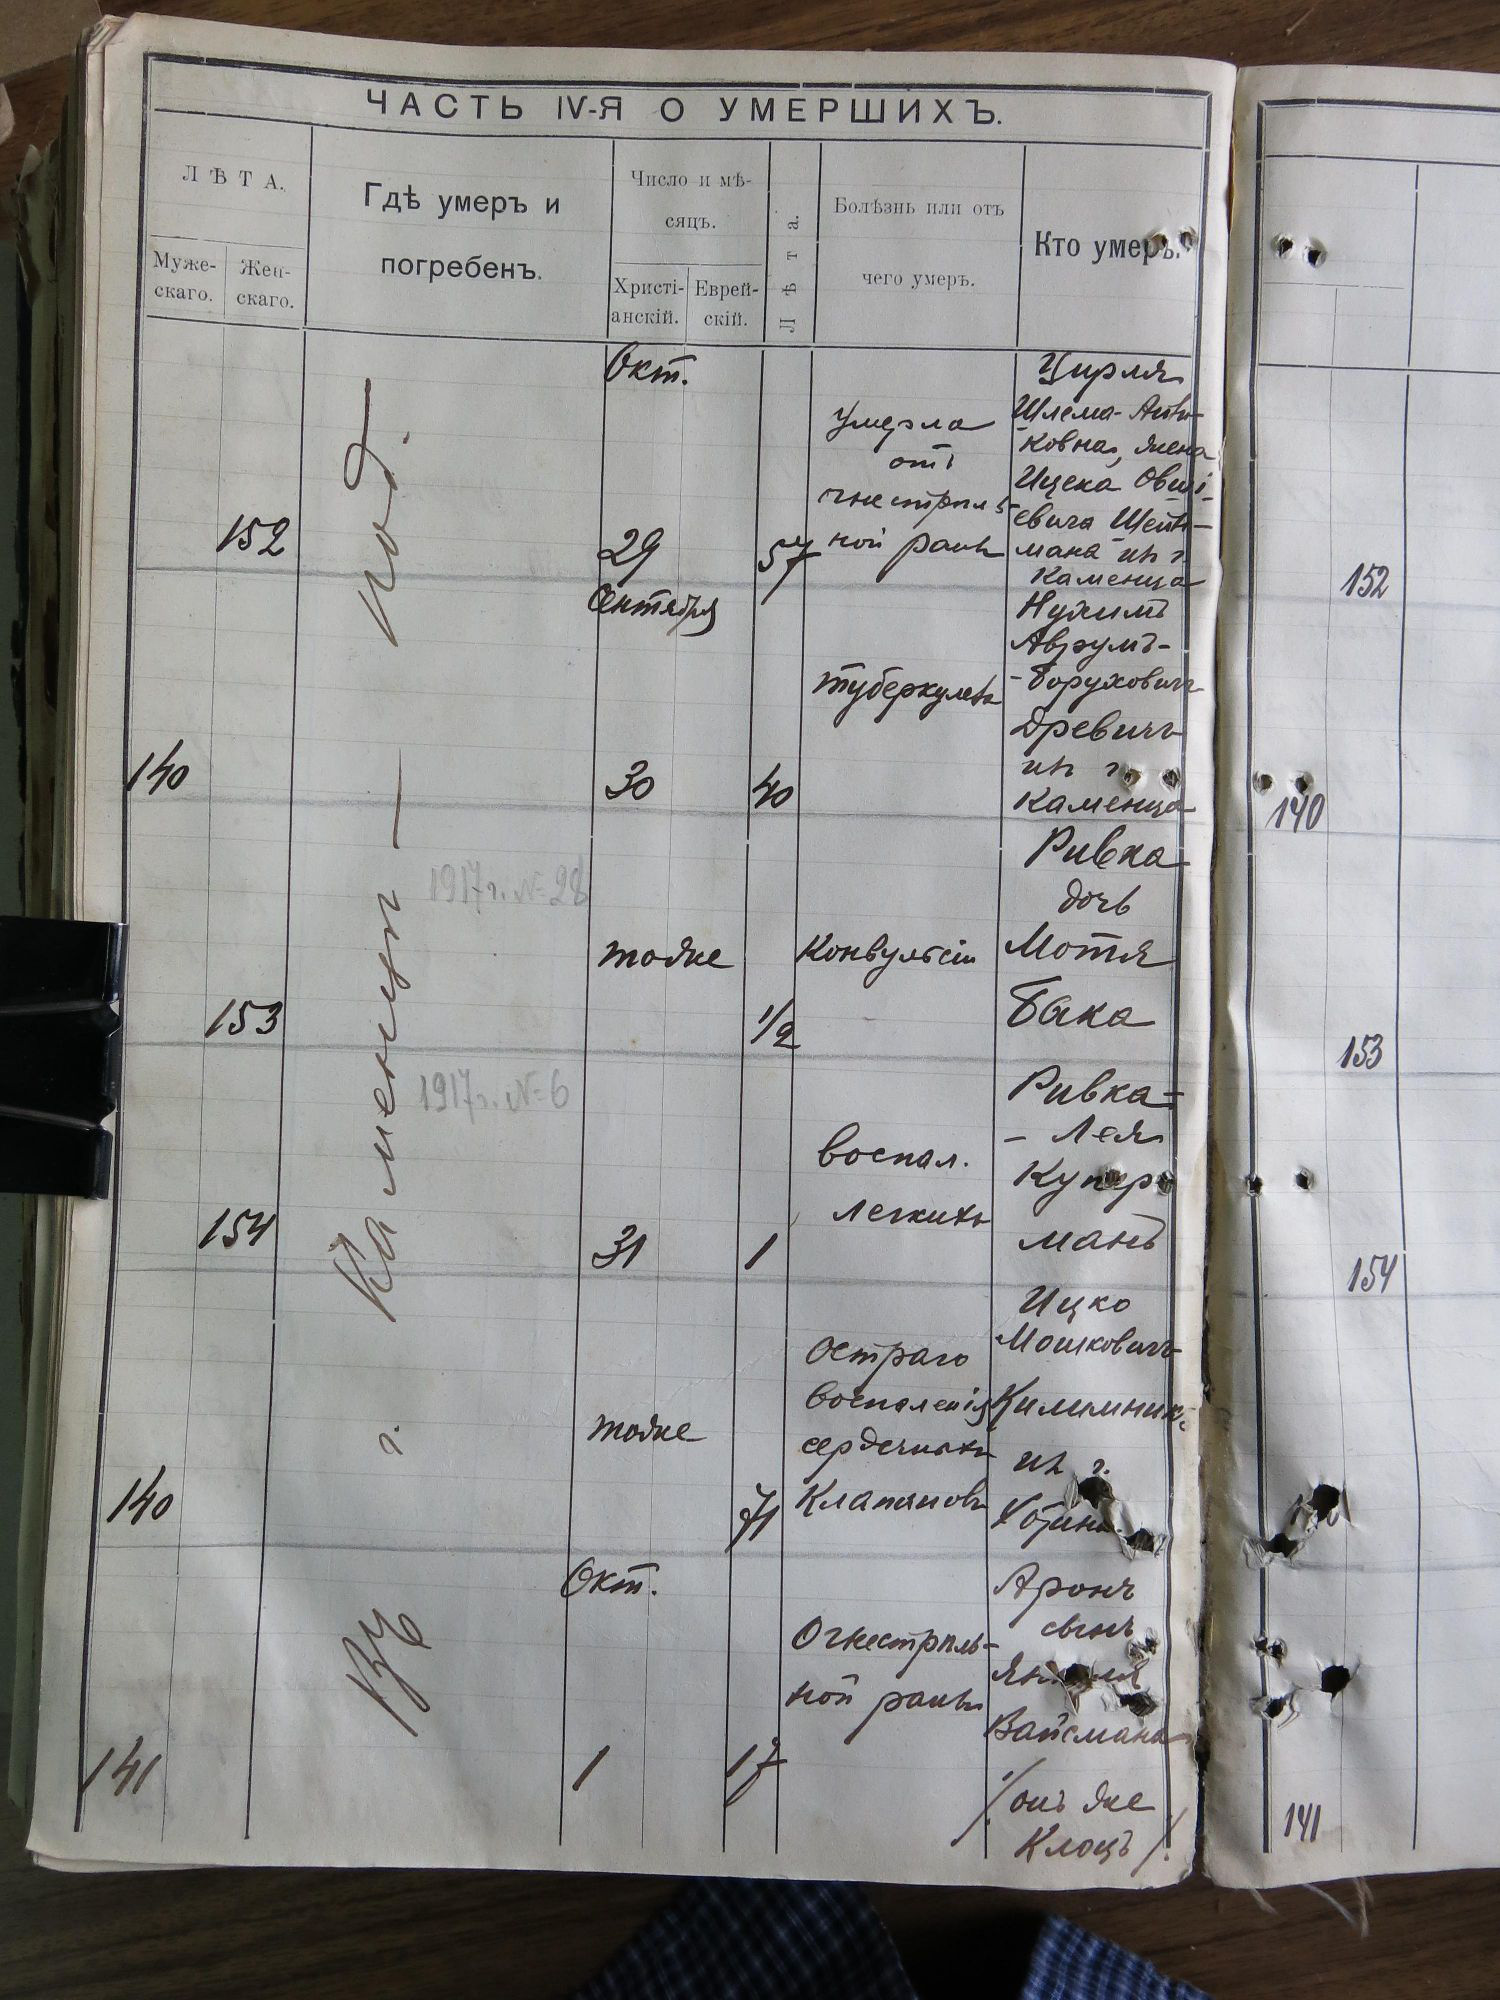 ЧАСТЬ IV-Я О УМЕРШИХЪ.
ЛѢТА.
Муже-
скаго.
Жен-
скаго.
Гдѣ умеръ и
погребенъ.
Число и мѣ-
сяцъ.
Христі-
анскій.
Еврей-
скій.
Лѣта.
Болѣзнь или отъ
чего умеръ.
Кто умеръ.
Въ г. Каменцѣ — под.
152
Окт.
29
57
Умерла
отъ
огнестрѣль
ной раны
Цирля
Шлема-
ковна, жена
Ицека
евича
мана изъ г.
Каменца
152
140
Октября
30
40
туберкулезъ
Нухимъ
Аврумъ-
-Боруховичъ
Древичъ
изъ г.
Каменца
140
1917 г. № 28
153
тоже
1/2
Конвульсіи
Ривка
дочь
Мотя
Быка
153
1917 г. № 6
154
31
1
воспал.
легкихъ
Ривка-
- Лея
Купер
манъ
154
140
тоже
71
Остраго
воспаленія
сердечныхъ
Клапановъ
Ицко
Мошковичъ
Килимник
изъ г.
Хотина
141
Окт.
1
17
Огнестрѣль-
ной раны
Аронъ
сынъ
Янкеля
Вайсмана
/онъ же
Клоцъ/.
141